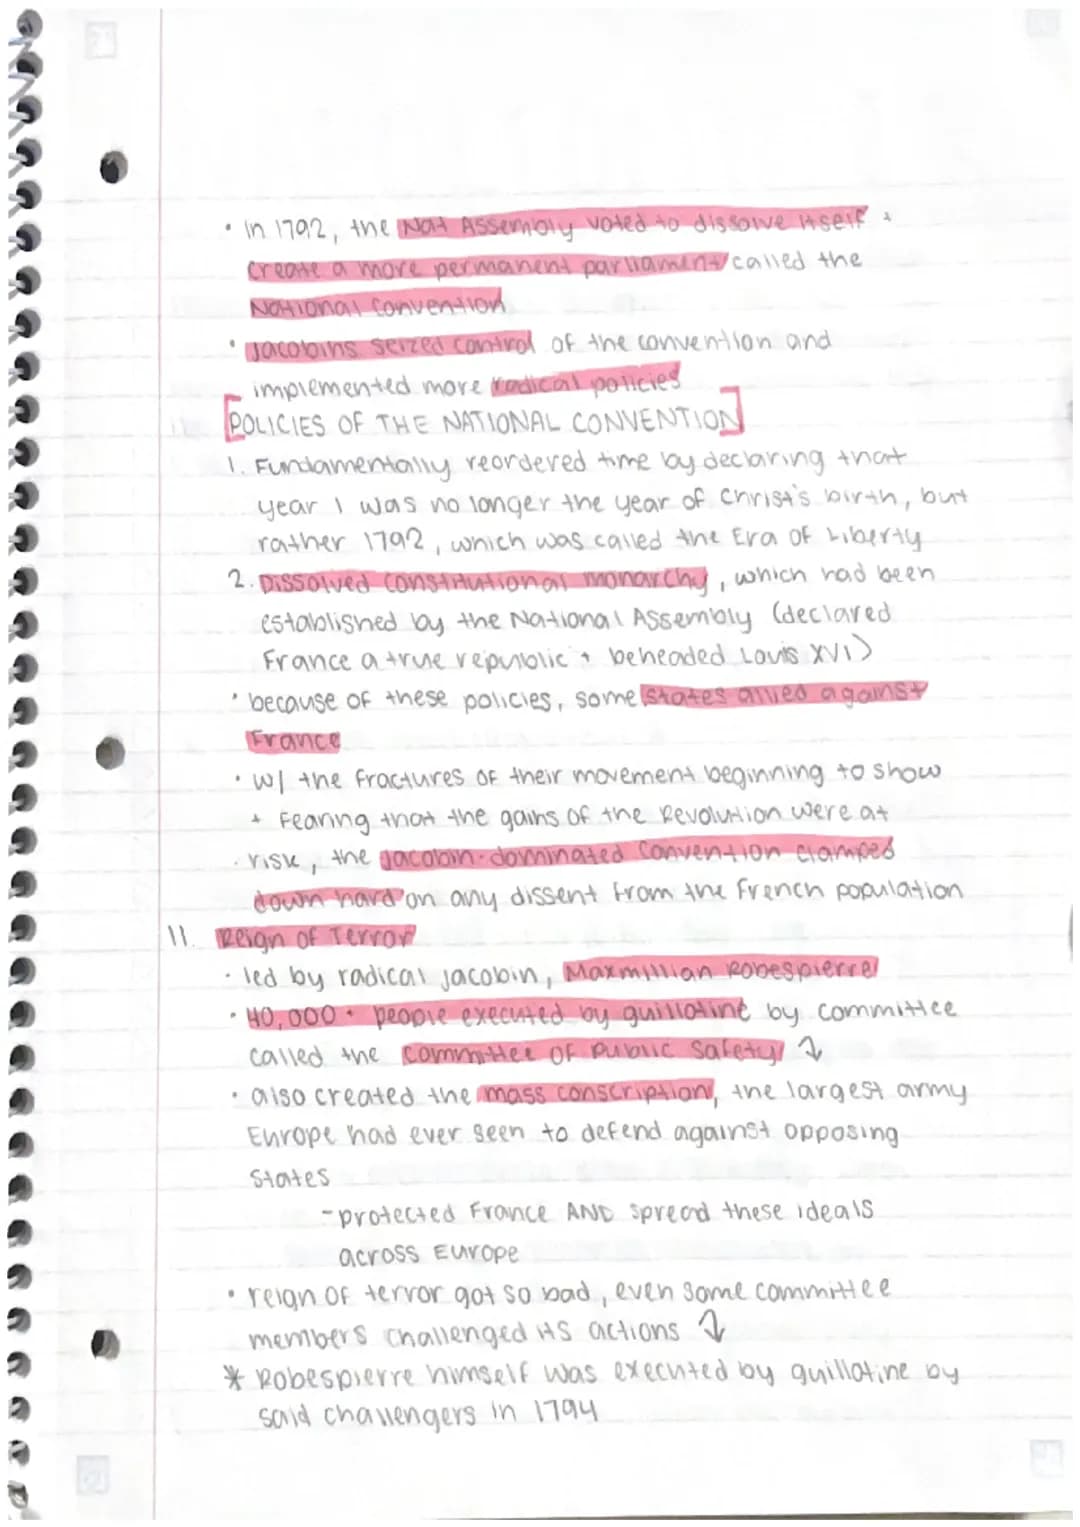 • In 1792, the Nat Assembly voted to dissolve itself +
create a more permanent parliament called the
National Convention
• Jacobins seized control of the convention and
implemented more radical policies
[POLICIES OF THE NATIONAL CONVENTION]
1. Fundamentally reordered time by declaring that
year 1 was no longer the year of Christ's birth, but
rather 1792, which was called the Era of Liberty
2. Dissolved constitutional monarchy, which had been
established by the National Assembly (declared
France a true republic + beheaded Louis XVI)
• because of these policies, some states allied against
France
• w/ the fractures of their movement beginning to show
+ fearing that the gains of the Revolution were at
risk, the Jacobin-dominated Convention clamped
down hard on any dissent from the French population
11. Reign of Terror
• led by radical jacobin, Maxmillian Robespierre
• 40,000+ people executed by guillotine by committee
called the Committee of Public Safety ↓
• also created the mass conscription, the largest army
Europe had ever seen to defend against opposing
states
- protected France AND spread these ideals
across Europe
• reign of terror got so bad, even some committee
members challenged its actions ↓
* Robespierre himself was executed by guillotine by
said challengers in 1794